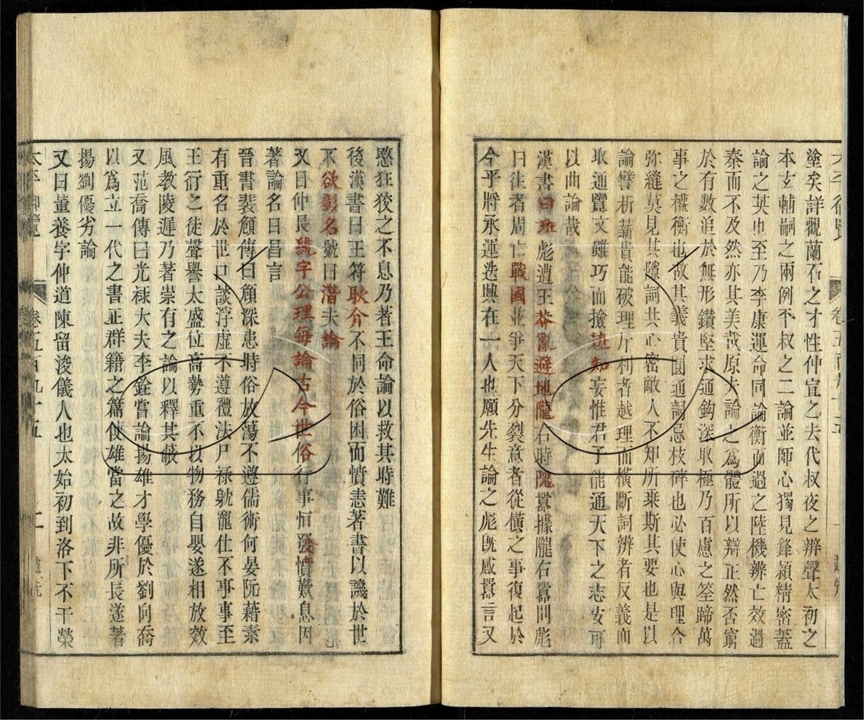 塗矣詳觀蘭石之才性仲宣之去代叔夜之辨聲太初之
本玄輔嗣之兩例平叔之二論並師心獨見鋒穎精密蓋
論之英也至乃李康運命同論衡而過之陸機辨亡效過
秦而不及然亦其美哉原夫論之為體所以辯正然否窮
於有數追於無形鑽堅求通鈎深取極乃百慮之筌蹄萬
事之權衡也故其義貴圓通詞忌枝碎也必使心與理合
弥縫莫見其隙詞共心密敵人不知所乗斯其要也是以
論譬析薪貴能破理斤利者越理而橫斷詞辨者反義而
取通覽文雖巧而撿迹知妄惟君子能通天下之志安可
以曲論哉
漢書曰班彪遭王莽亂避地隴右時隗囂據隴右囂問彪
曰往者周亡戰國並爭天下分裂意者從橫之事復起於
今乎將承運迭興在一人也願先生論之彪既感囂言又
愍狂狡之不息乃著王命論以救其時難
後漢書曰王符耿介不同於俗困而憤恚著書以譏於世
不欲彰名號曰潛夫論
又曰仲長統字公理每論古今世俗行事恒發憤歎息因
著論名曰昌言
晉書裴頠傳曰頠深患時俗放蕩不遵儒術何晏阮藉素
有重名於世口談浮虛不遵禮法尸禄躭寵仕不事事至
王衍之徒聲譽太盛位高勢重不以物務自嬰遂相放效
風教陵遲乃著崇有之論以釋其蔽
又范喬傳曰光禄大夫李銓嘗論揚雄才學優於劉向喬
以爲立一代之書正群籍之篇使雄當之故非所長遂著
揚劉優劣論
又曰董養字仲道陳留浚儀人也太始初到洛下不干榮
太平御覽 卷五百九十五 二